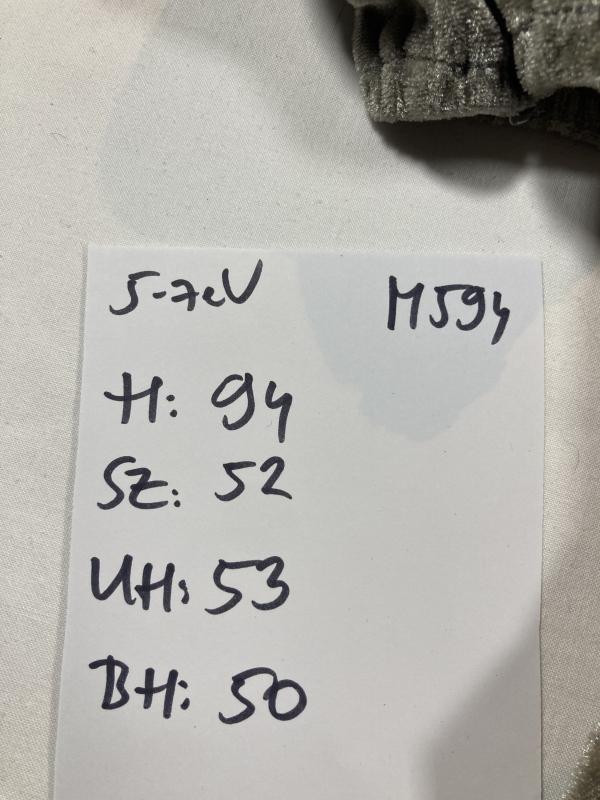 5-7eV M594
H: 94
SZ: 52
UH: 53
BH: 50